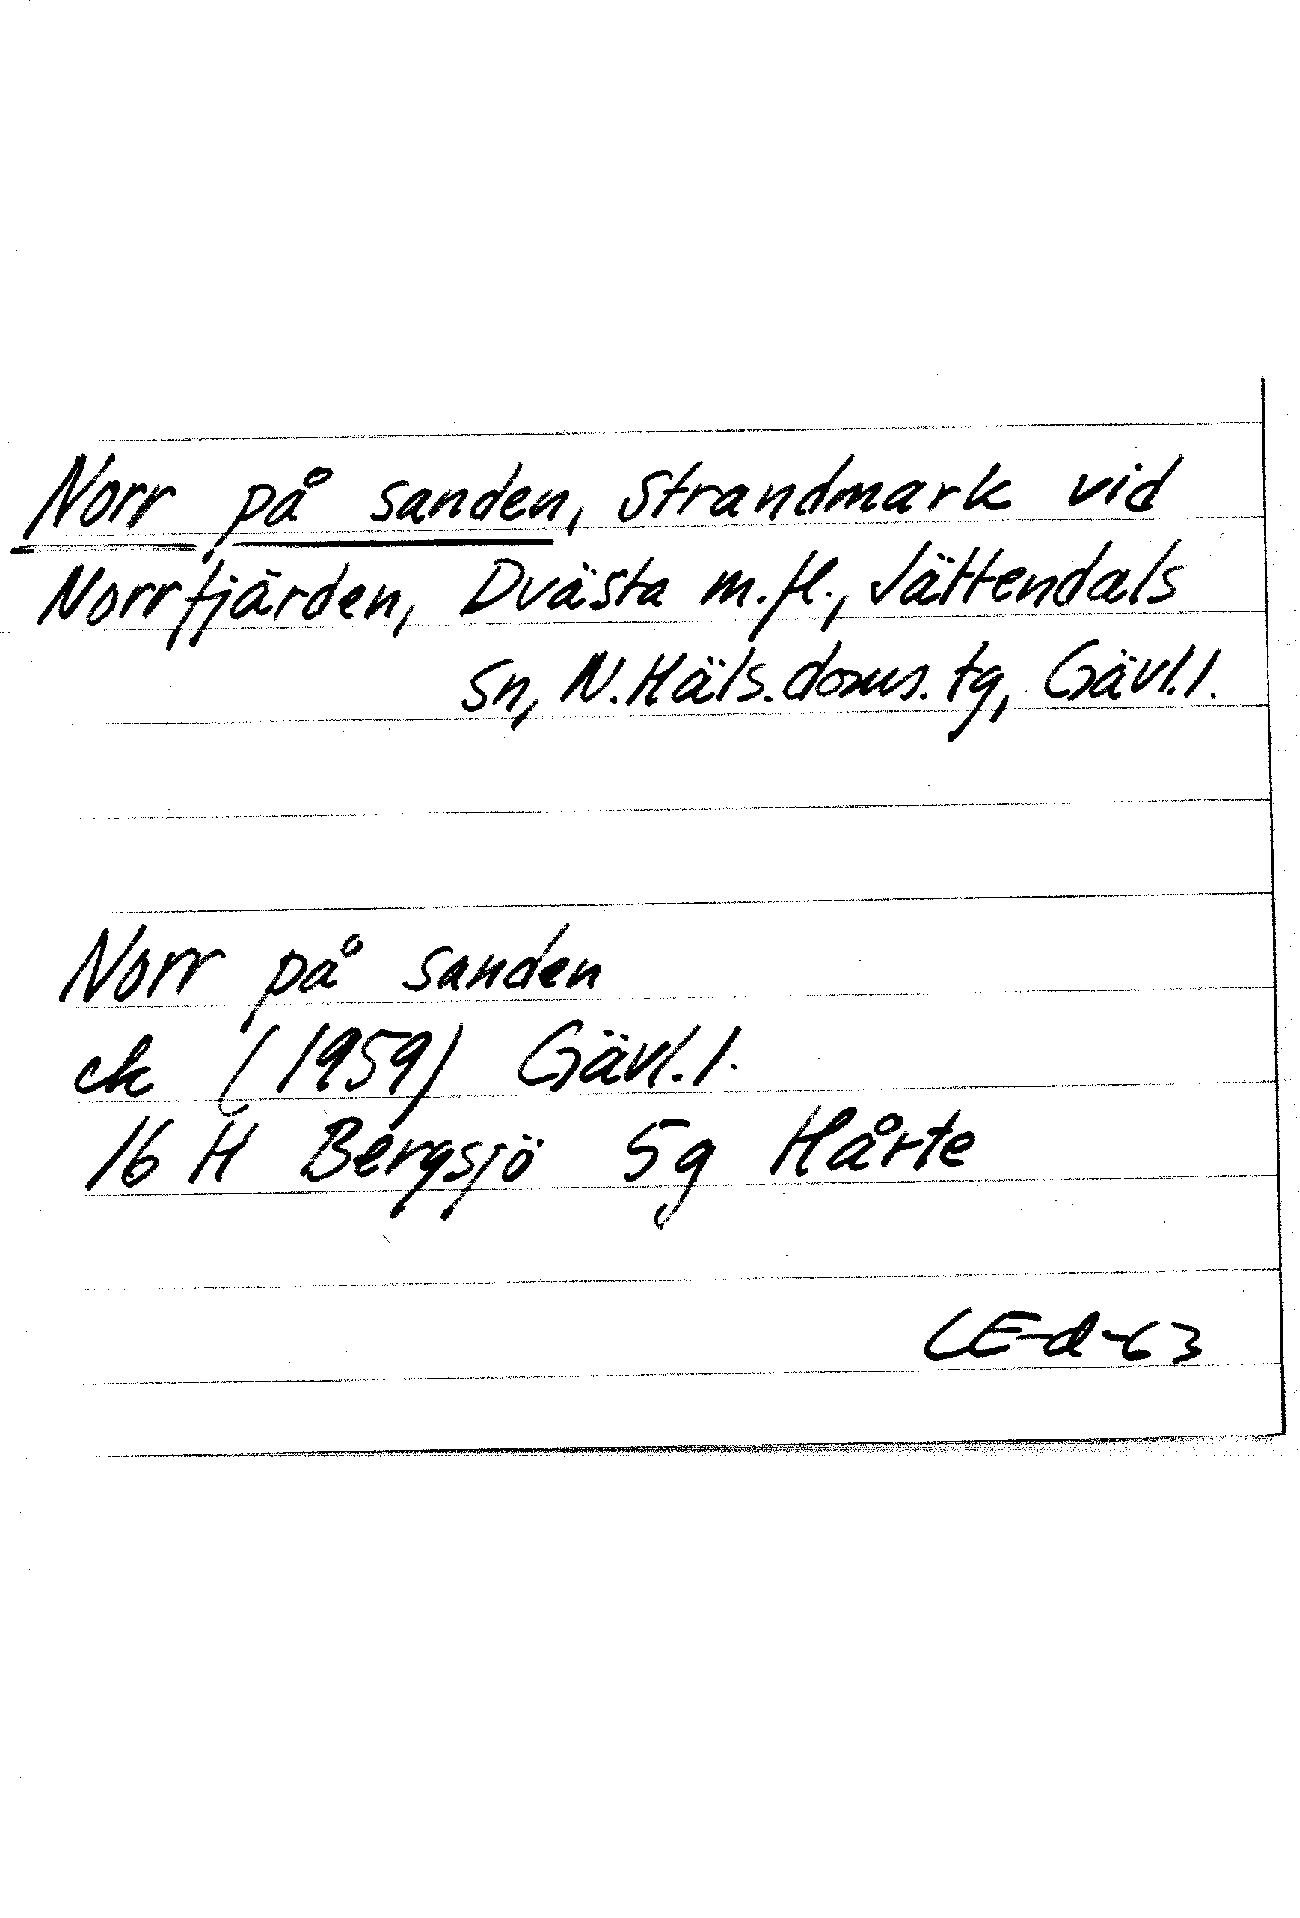 Norr på sanden, Strandmark vid
Norrfjärden, Dvästa m.fl., Jättendals
sn, N.Häls.doms.tg, Gävl.l.
Norr på sanden
ek (1959) Gävl.l.
16 H Bergsjö 5g Hårte
CE-d-63